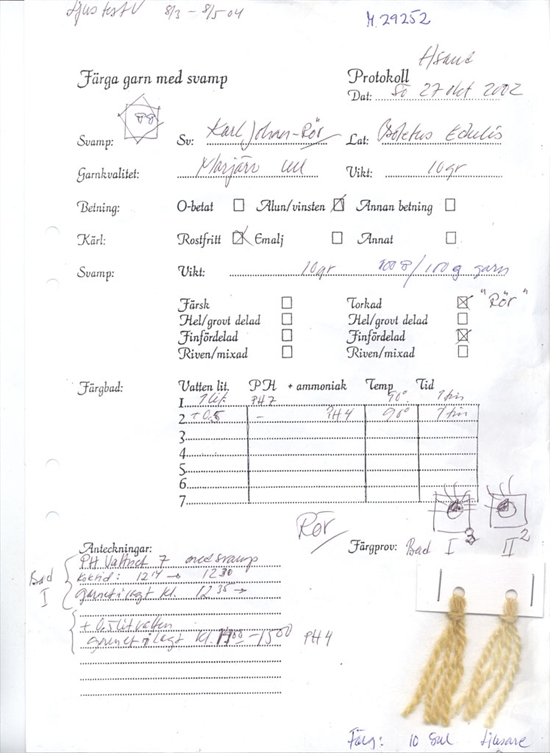 Ljustest V 8/3 - 8/5 04
M. 29252
Färga garn med svamp
Protokoll
Dat: Sö 27 okt 2002
Svamp: Sv: Karl Johan-Rör Lat: Boletus Edulis
Garnkvalitet: ull Vikt: 10gr
Betning: O-betat Alun/vinsten Annan betning
Kärl: Rostfritt Emalj Annat
Svamp: Vikt: 10gr 100g/100g garn
Färsk Torkad "Rör"
Hel/grovt delad Hel/grovt delad
Finfördelad Finfördelad
Riven/mixad Riven/mixad
Färgbad: Vatten lit. PH + ammoniak Temp Tid
1 1 lit. PH7 90° 1 tim
2 + 0.5 - PH4 90° 1 tim
3
4
5
6
7
Rör
Anteckningar: Färgprov: Bad I 3 II 2
Bad I
PH Vattnet 7 med svamp
Koktid: 1214 → 1230
garnet ilagt kl. 1235 →
+ 0.5 lit vatten
garnet ilagt kl. 1400 - 1500 PH4
Färg: 10 Gul ljusare